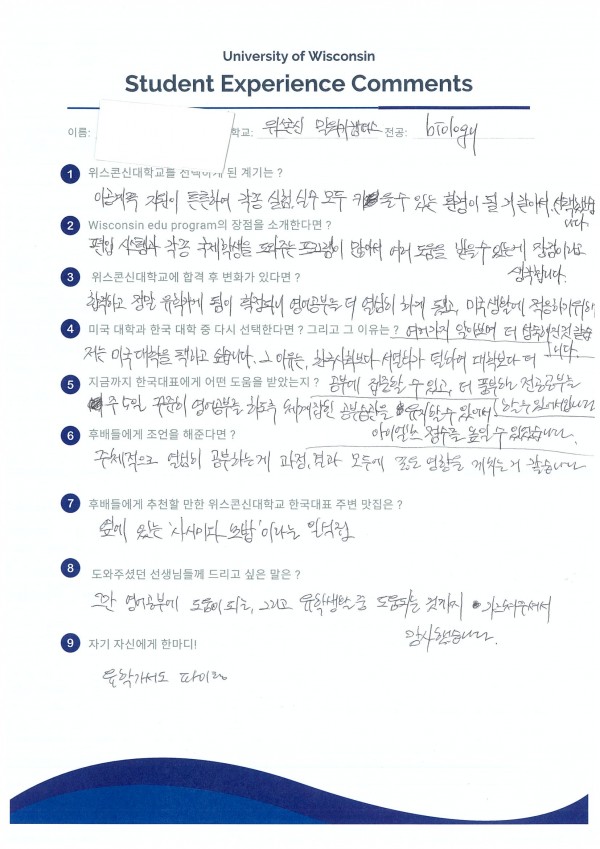 University of Wisconsin
Student Experience Comments
이름: 학교: 위스콘신 전공: biology
1 위스콘신대학교를 선택하게 된 계기는 ?
이공계쪽 지원이 튼튼하여 각종 실험, 실습 모두 할 수 있는 환경이 될 거 같아서, 선택했습
니다.
2 Wisconsin edu program의 장점을 소개한다면 ?
편입 시험과 각종 국제학생을 도와주는 프로그램이 많아서 여러 도움을 받을 수 있는게 장점이라고
생각합니다.
3 위스콘신대학교에 합격 후 변화가 있다면 ?
합격하고 정말 유학가게 됨이 확정되니 영어공부를 더 열심히 하게 됐고, 미국생활에 적응하기위해
4 미국 대학과 한국 대학 중 다시 선택한다면 ? 그리고 그 이유는 ? 여러가지 알아보며 더 것 같습
니다.
저는 미국대학을 택하고 싶습니다. 그 이유는, 한국사회보다 덜하여 더
5 지금까지 한국대표에게 어떤 도움을 받았는지 ? 공부에 집중할 수 있고, 더 풍부한 전공공부를
할 수 있어서입니다
주 5일 꾸준히 영어공부를 하도록 체계잡힌 공부습관을 유지할 수 있어서
6 후배들에게 조언을 해준다면 ? 아이엘츠 점수를 높일 수 있었습니다.
주체적으로 열심히 공부하는게 과정, 결과 모두에 좋은 영향을 끼치는 거 같습니다
7 후배들에게 추천할 만한 위스콘신대학교 한국대표 주변 맛집은 ?
옆에 있는 '사시미다 초밥'이라는 일식집
8 도와주셨던 선생님들께 드리고 싶은 말은 ?
영어공부에 도움이 되는, 그리고 유학생활 중 도움되는 것까지 가르쳐주셔서
감사했습니다.
9 자기 자신에게 한마디!
유학가서도 파이팅